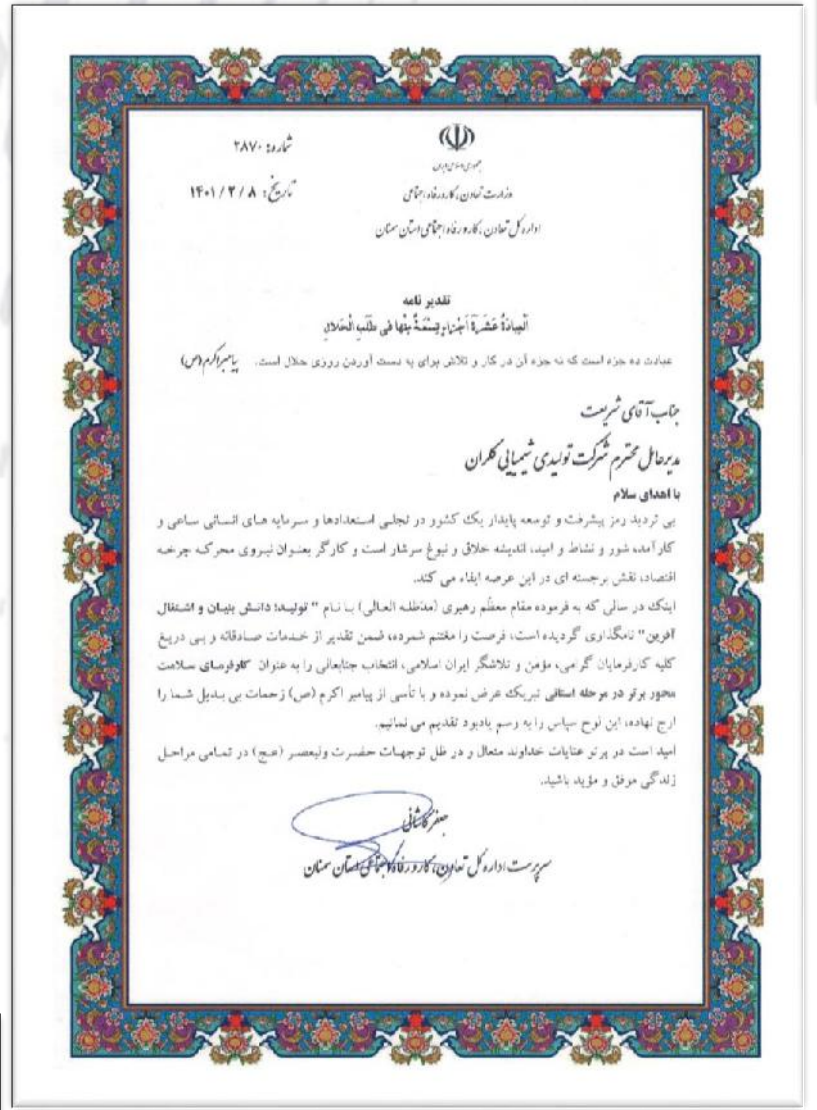 شماره: ۲۸۷۰
تاریخ: ۱۴۰۱/۲/۸
جمهوری اسلامی ایران
وزارت تعاون، کار و رفاه اجتماعی
اداره کل تعاون، کار و رفاه اجتماعی استان سمنان
تقدیر نامه
اَلْعِبادَةُ عَشَرَةُ اَجْزاءٍ تِسْعَةٌ مِنْها فی طَلَبِ الْحَلالِ
عبادت ده جزء است که نه جزء آن در کار و تلاش برای به دست آوردن روزی حلال است. پیامبر اکرم (ص)
جناب آقای شریعت
مدیرعامل محترم شرکت تولیدی شیمیایی کلران
با اهدای سلام
بی تردید رمز پیشرفت و توسعه پایدار یک کشور در تجلی استعدادها و سرمایه های انسانی ساعی و
کارآمد، شور و نشاط و امید، اندیشه خلاق و نبوغ سرشار است و کارگر بعنوان نیروی محرکه چرخه
اقتصاد، نقش برجسته ای در این عرصه ایفاء می کند.
اینک در سالی که به فرموده مقام معظّم رهبری (مدظله العالی) با نام " تولید؛ دانش بنیان و اشتغال
آفرین" نامگذاری گردیده است، فرصت را مغتنم شمرده، ضمن تقدیر از خدمات صادقانه و بی دریغ
کلیه کارفرمایان گرامی، مؤمن و تلاشگر ایران اسلامی، انتخاب جنابعالی را به عنوان کارفرمای سلامت
محور برتر در مرحله استانی تبریک عرض نموده و با تأسی از پیامبر اکرم (ص) زحمات بی بدیل شما را
ارج نهاده، این لوح سپاس را به رسم یادبود تقدیم می نمائیم.
امید است در پرتو عنایات خداوند متعال و در ظل توجهات حضرت ولیعصر (عج) در تمامی مراحل
زندگی موفق و مؤید باشید.
جعفر کاشانی
سرپرست اداره کل تعاون، کار و رفاه اجتماعی استان سمنان